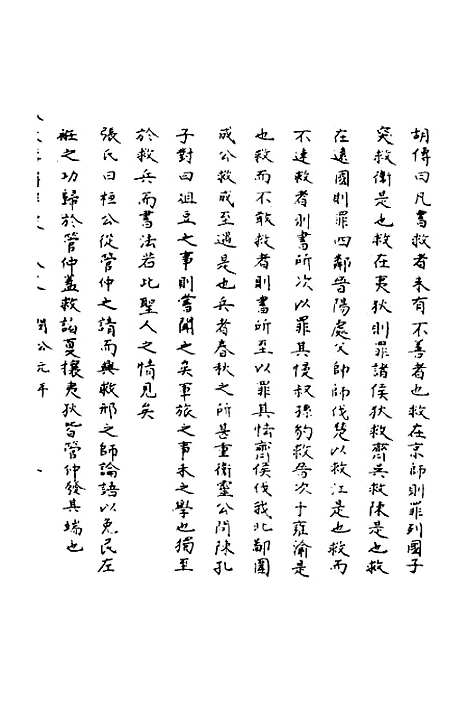 胡傳曰凡書救者未有不善者也救在京師則罪列國子
突救衛是也救在夷狄則罪諸侯狄救齊吳救陳是也救
在遠國則罪四鄰晉陽處父帥師伐楚以救江是也救而
不速救者則書所次以罪其慢叔孫豹救晉次于雍渝是
也救而不敢救者則書所至以罪其怯齊侯伐我北鄙圍
成公救成至遇是也兵者春秋之所甚重衛靈公問陳孔
子對曰俎豆之事則嘗聞之矣軍旅之事未之學也獨至
於救兵而書法若此聖人之情見矣
張氏曰桓公從管仲之請而興救邢之師論語以免民左
衽之功歸於管仲蓋救諸夏攘夷狄皆管仲發其端也
閔公元年